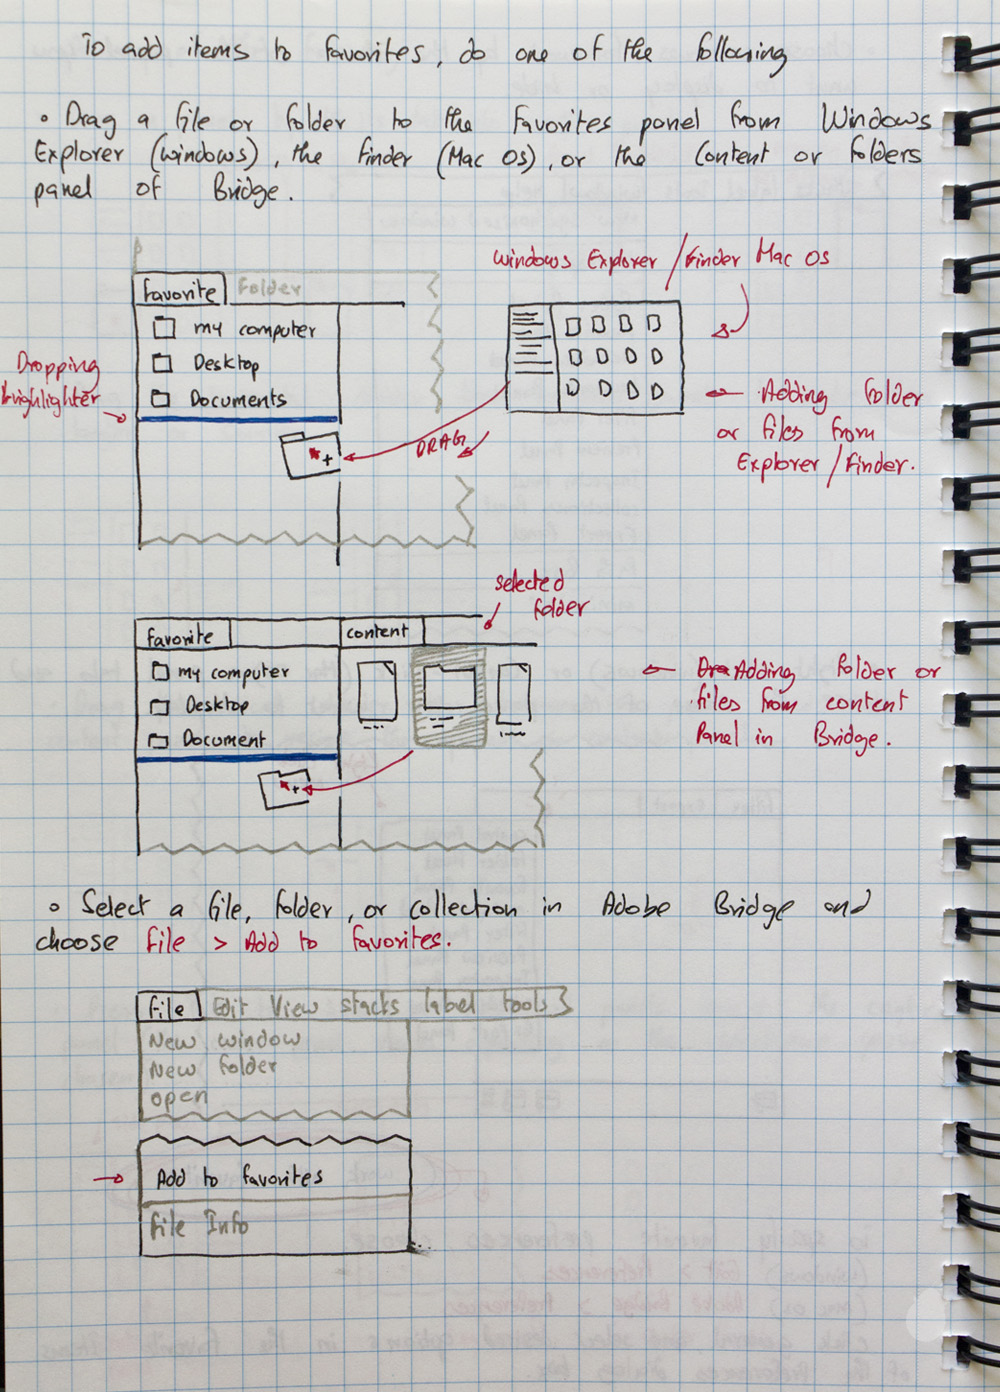 To add items to favorites, do one of the following
• Drag a file or folder to the Favorites panel from Windows
Explorer (windows), the Finder (Mac Os), or the Content or Folders
panel of Bridge.
windows Explorer / Finder Mac Os
Favorite Folder
my computer
Desktop
Documents
Dropping
highlighter
DRAG
Adding Folder
or files from
Explorer / Finder.
selected
folder
Favorite content
my computer
Desktop
Document
Adding folder or
files from content
Panel in Bridge.
• Select a file, folder, or collection in Adobe Bridge and
choose File > Add to favorites.
File Edit View stacks label tools
New window
New folder
open
Add to favorites
File Info